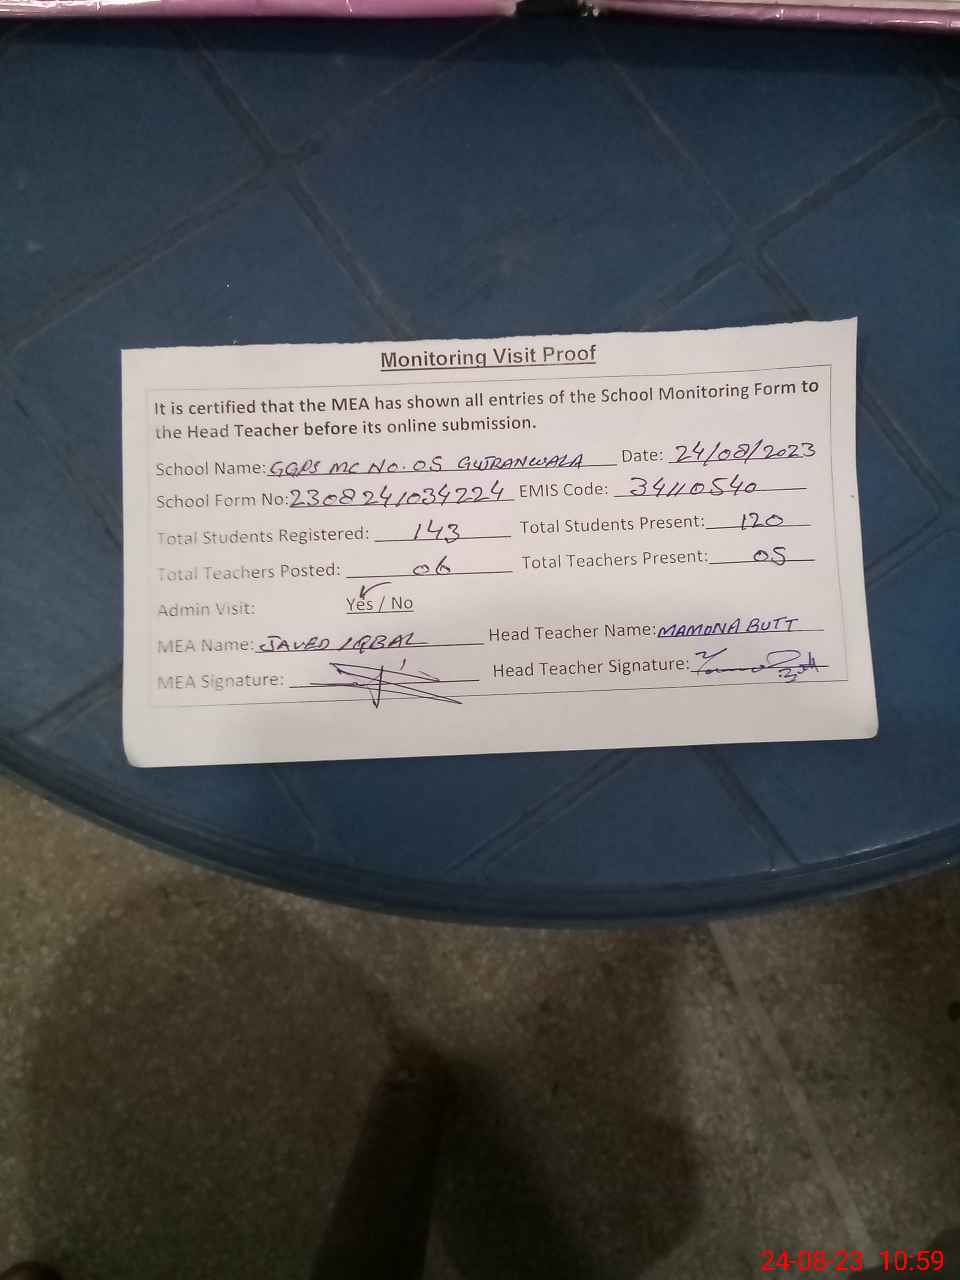 Monitoring Visit Proof
It is certified that the MEA has shown all entries of the School Monitoring Form to
the Head Teacher before its online submission.
School Name: GGPS MC NO. 05 GUJRANWALA Date: 24/08/2023
School Form No: 2308241034224 EMIS Code: 34110540
Total Students Registered: 143 Total Students Present: 120
Total Teachers Posted: 06 Total Teachers Present: 05
Admin Visit: Yes / No
MEA Name: JAVED IQBAL Head Teacher Name: MAMONA BUTT
MEA Signature: Head Teacher Signature:
24-08-23 10:59